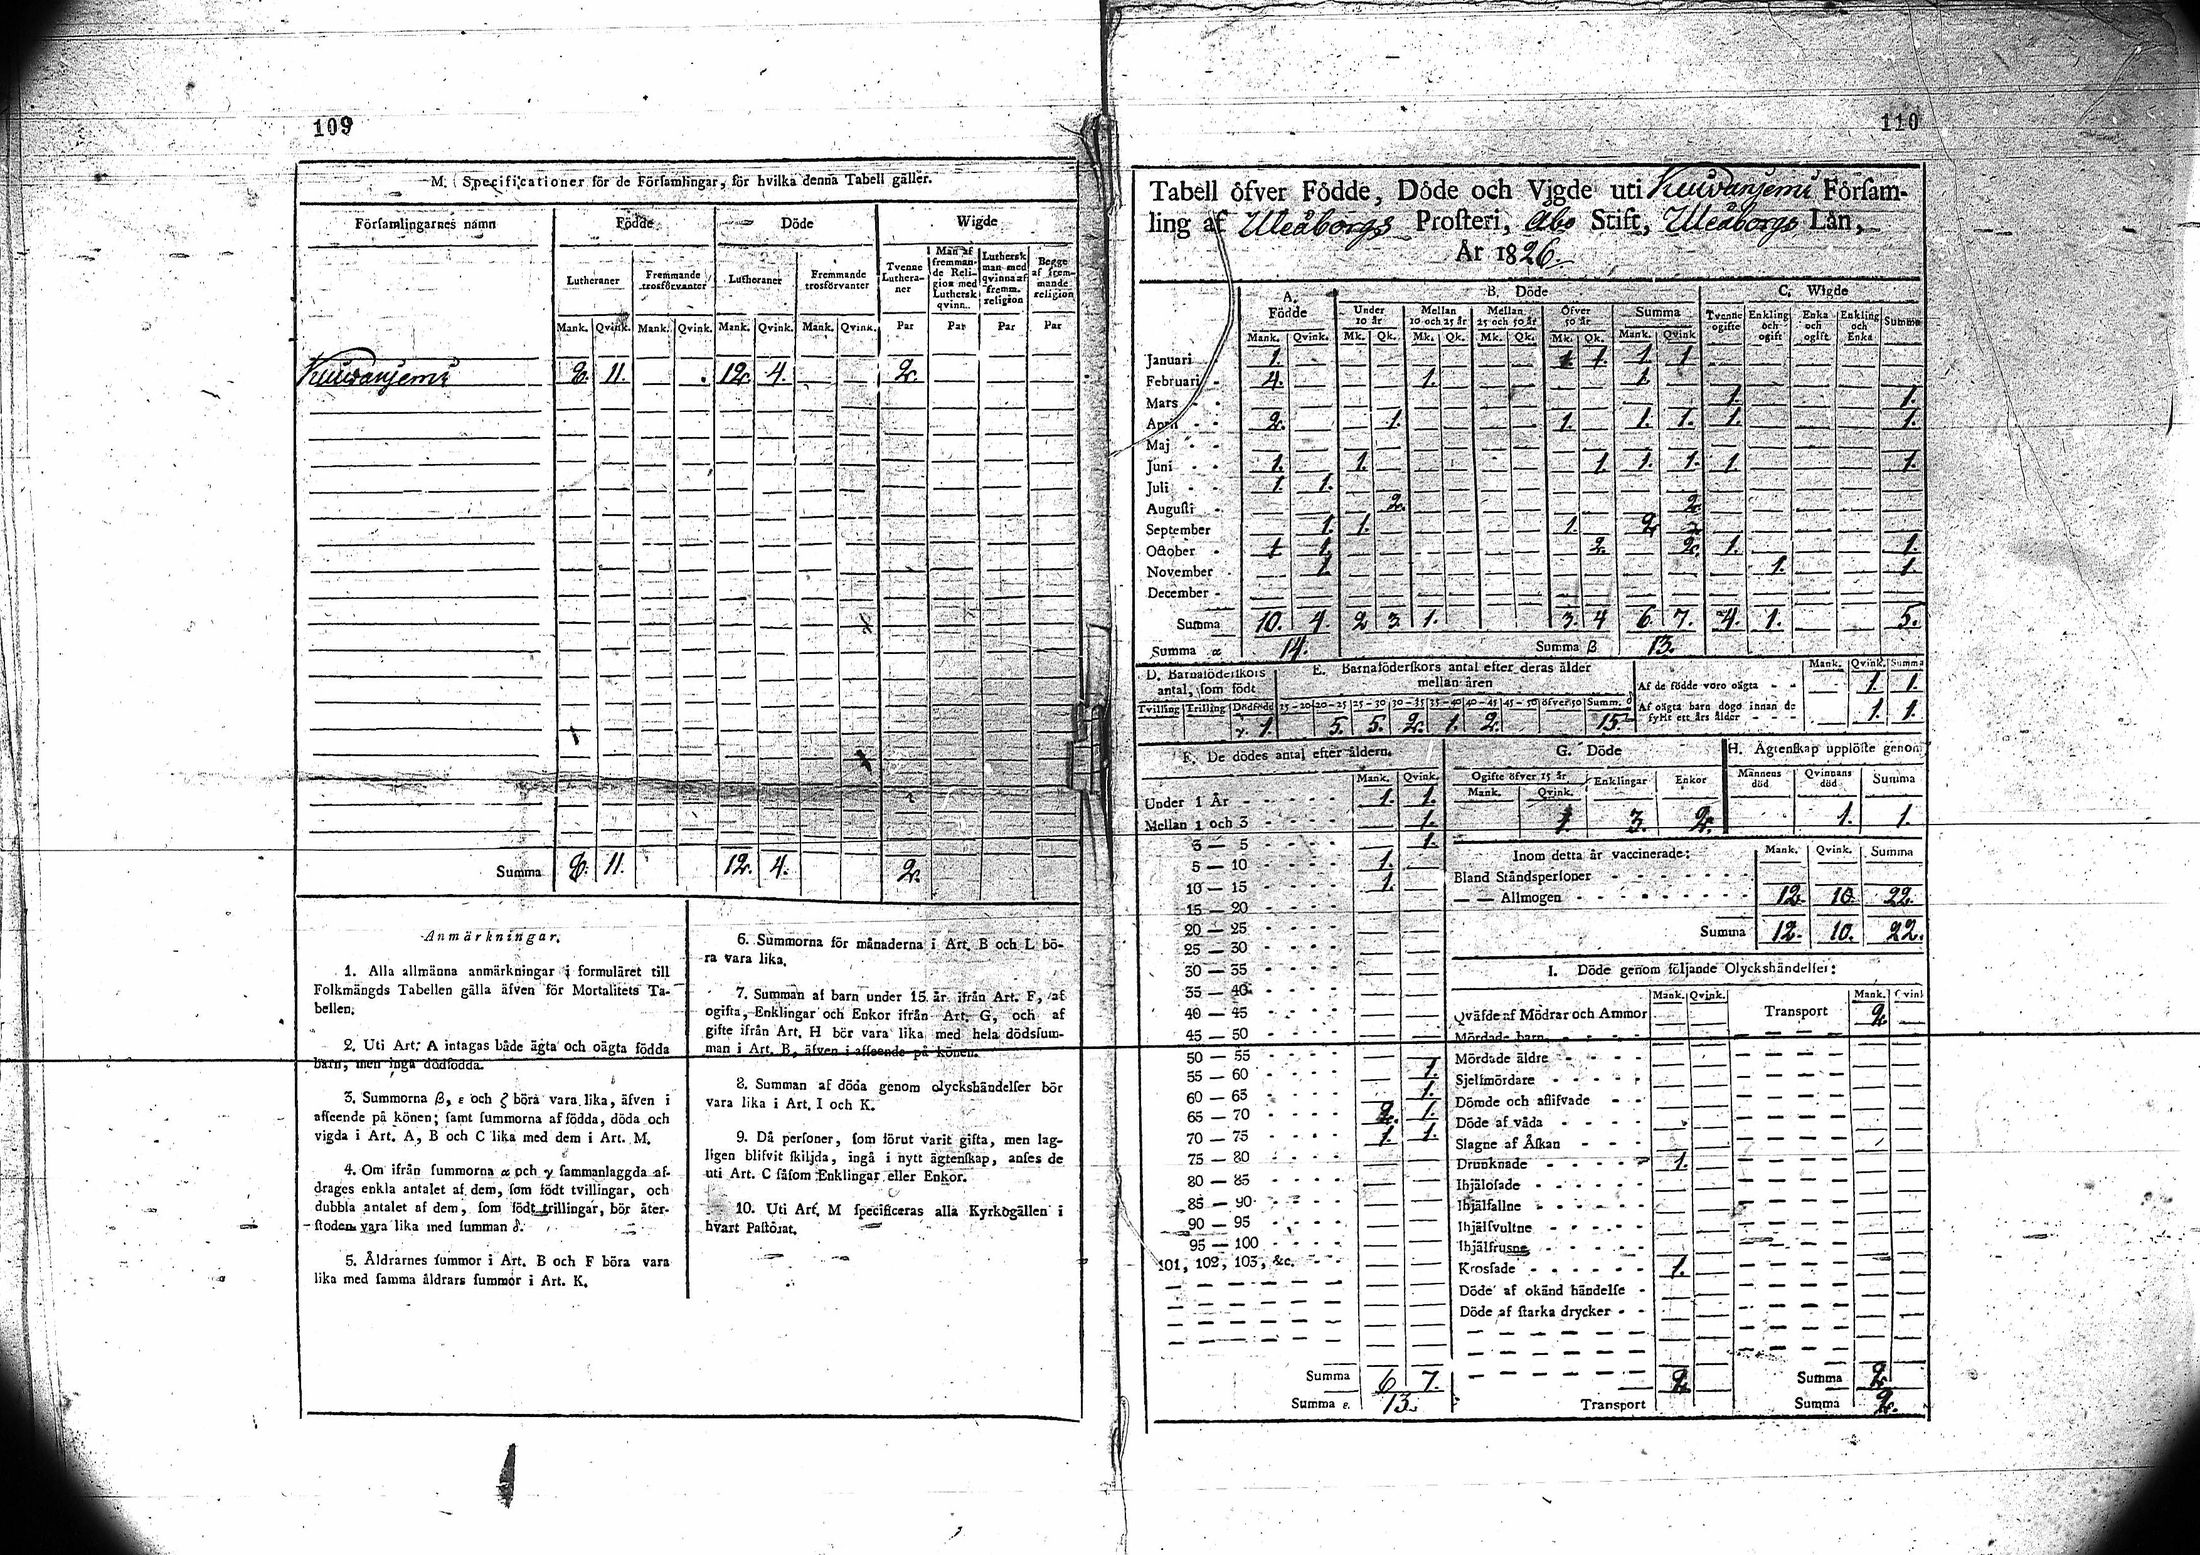 109
M. Specificationer för de Förſamlingar, för hvilka denna Tabell gäller.
Förſamlingarnes namn
Födde
Döde
Wigde
Lutheraner
Fremmande trosförvanter
Lutheraner
Fremmande trosförvanter
Tvenne Lutheraner
Man af fremmande Religion med Luthersk qvinn.
Luthersk man med qvinna af fremm. religion
Begge af fremmande religion
Mank. Qvink. Mank. Qvink. Mank. Qvink. Mank. Qvink. Par Par Par Par
Kuiwanjemi 8. 11. 12. 4. 2.
Summa 8. 11. 12. 4. 2.
Anmärkningar.
1. Alla allmänna anmärkningar i formuläret till
Folkmängds Tabellen gälla äfven för Mortalitets Ta-
bellen.
2. Uti Art. A intagas både ägta och oägta födda
barn, men inga dödfödda.
3. Summorna β, ε och ζ böra vara lika, äfven i
afſeende på könen; ſamt ſummorna af födda, döda och
vigda i Art. A, B och C lika med dem i Art. M.
4. Om ifrån ſummorna α och γ ſammanlaggda af-
drages enkla antalet af dem, ſom födt tvillingar, och
dubbla antalet af dem, ſom födt trillingar, bör åter-
ſtoden vara lika med ſumman δ.
5. Åldrarnes ſummor i Art. B och F böra vara
lika med ſamma åldrars ſummor i Art. K.
6. Summorna för månaderna i Art. B och L bö-
ra vara lika.
7. Summan af barn under 15 år ifrån Art. F, af
ogifta, Enklingar och Enkor ifrån Art. G, och af
gifte ifrån Art. H bör vara lika med hela dödsſum-
man i Art. B, äfven i afſeende på könen.
8. Summan af döda genom olyckshändelſer bör
vara lika i Art. I och K.
9. Då perſoner, ſom förut varit gifta, men lag-
ligen blifvit ſkiljda, ingå i nytt ägtenſkap, anſes de
uti Art. C ſåſom Enklingar eller Enkor.
10. Uti Art. M ſpecificeras alla Kyrkogällen i
hvart Paſtorat.
110
Tabell öfver Födde, Döde och Vigde uti Kuiwanjemi Förſam-
ling af Uleåborgs Proſteri, Åbo Stift, Uleåborgs Län,
År 1826.
A. Födde
B. Döde
C. Wigde
Under 10 år
Mellan 10 och 25 år
Mellan 25 och 50 år
Öfver 50 år
Summa
Tvenne ogifte
Enkling och ogift
Enka och ogift
Enkling och Enka
Summa
Mank. Qvink. Mk. Qk. Mk. Qk. Mk. Qk. Mk. Qk. Mank. Qvink
Januari 1. 1 1. 1. 1
Februari 4. 1. 1.
Mars 1. 1.
April 2. 1. 1. 1. 1. 1. 1.
Maj
Juni 1. 1. 1 1. 1. 1. 1.
Juli 1. 1.
Auguſti 2. 2.
September 1. 1. 1. 2
October 1 1. 2. 2. 1. 1.
November 1. 1. 1.
December
Summa 10. 4 2 3. 1. 3. 4 6 7. 4. 1. 5.
Summa α 14. Summa β 13.
D. Barnaföderſkors antal, ſom födt
Tvilling Trilling Dödfödde
γ. 1.
E. Barnaföderſkors antal efter deras ålder
mellan åren
15-20 20-25 25-30 30-35 35-40 40-45 45-50 öfver 50 Summ. δ
5. 5. 2. 1. 2. 15
Mank. Qvink. Summa
Af de födde voro oägta 1. 1.
Af oägta barn dogo innan de
fyllt ett års ålder 1. 1.
F. De dödes antal efter åldern.
Mank. Qvink.
Under 1 År 1. 1.
Mellan 1 och 3 1.
3 — 5 1.
5 — 10 1.
10 — 15 1.
15 — 20
20 — 25
25 — 30
30 — 35
35 — 40
40 — 45
45 — 50
50 — 55
55 — 60 1.
60 — 65 1.
65 — 70 2. 1.
70 — 75 1. 1.
75 — 80
80 — 85
85 — 90
90 — 95
95 — 100
101, 102, 103, &c.
Summa 6 7.
Summa ε. 13.
G. Döde
Ogifte öfver 15 år
Mank. Qvink.
Enklingar
Enkor
1 3. 2.
H. Ägtenſkap upplöſte genom
Männens död
Qvinnans död
Summa
1. 1.
Inom detta år vaccinerade: Mank. Qvink. Summa
Bland Ståndsperſoner
— — Allmogen 12. 10. 22.
Summa 12. 10. 22.
I. Döde genom följande Olyckshändelſer:
Mank. Qvink. Mank. Qvink
Qväfde af Mödrar och Ammor
Transport 2
Mördade barn
Mördade äldre
Sjelfmördare
Dömde och aflifvade
Döde af våda
Slagne af Åſkan
Drunknade 1.
Ihjälofade
Ihjälfallne
Ihjälſvultne
Ihjälfrusne
Krosſade 1.
Döde af okänd händelſe
Döde af ſtarka drycker
2
Transport
Summa 2
Summa 2.